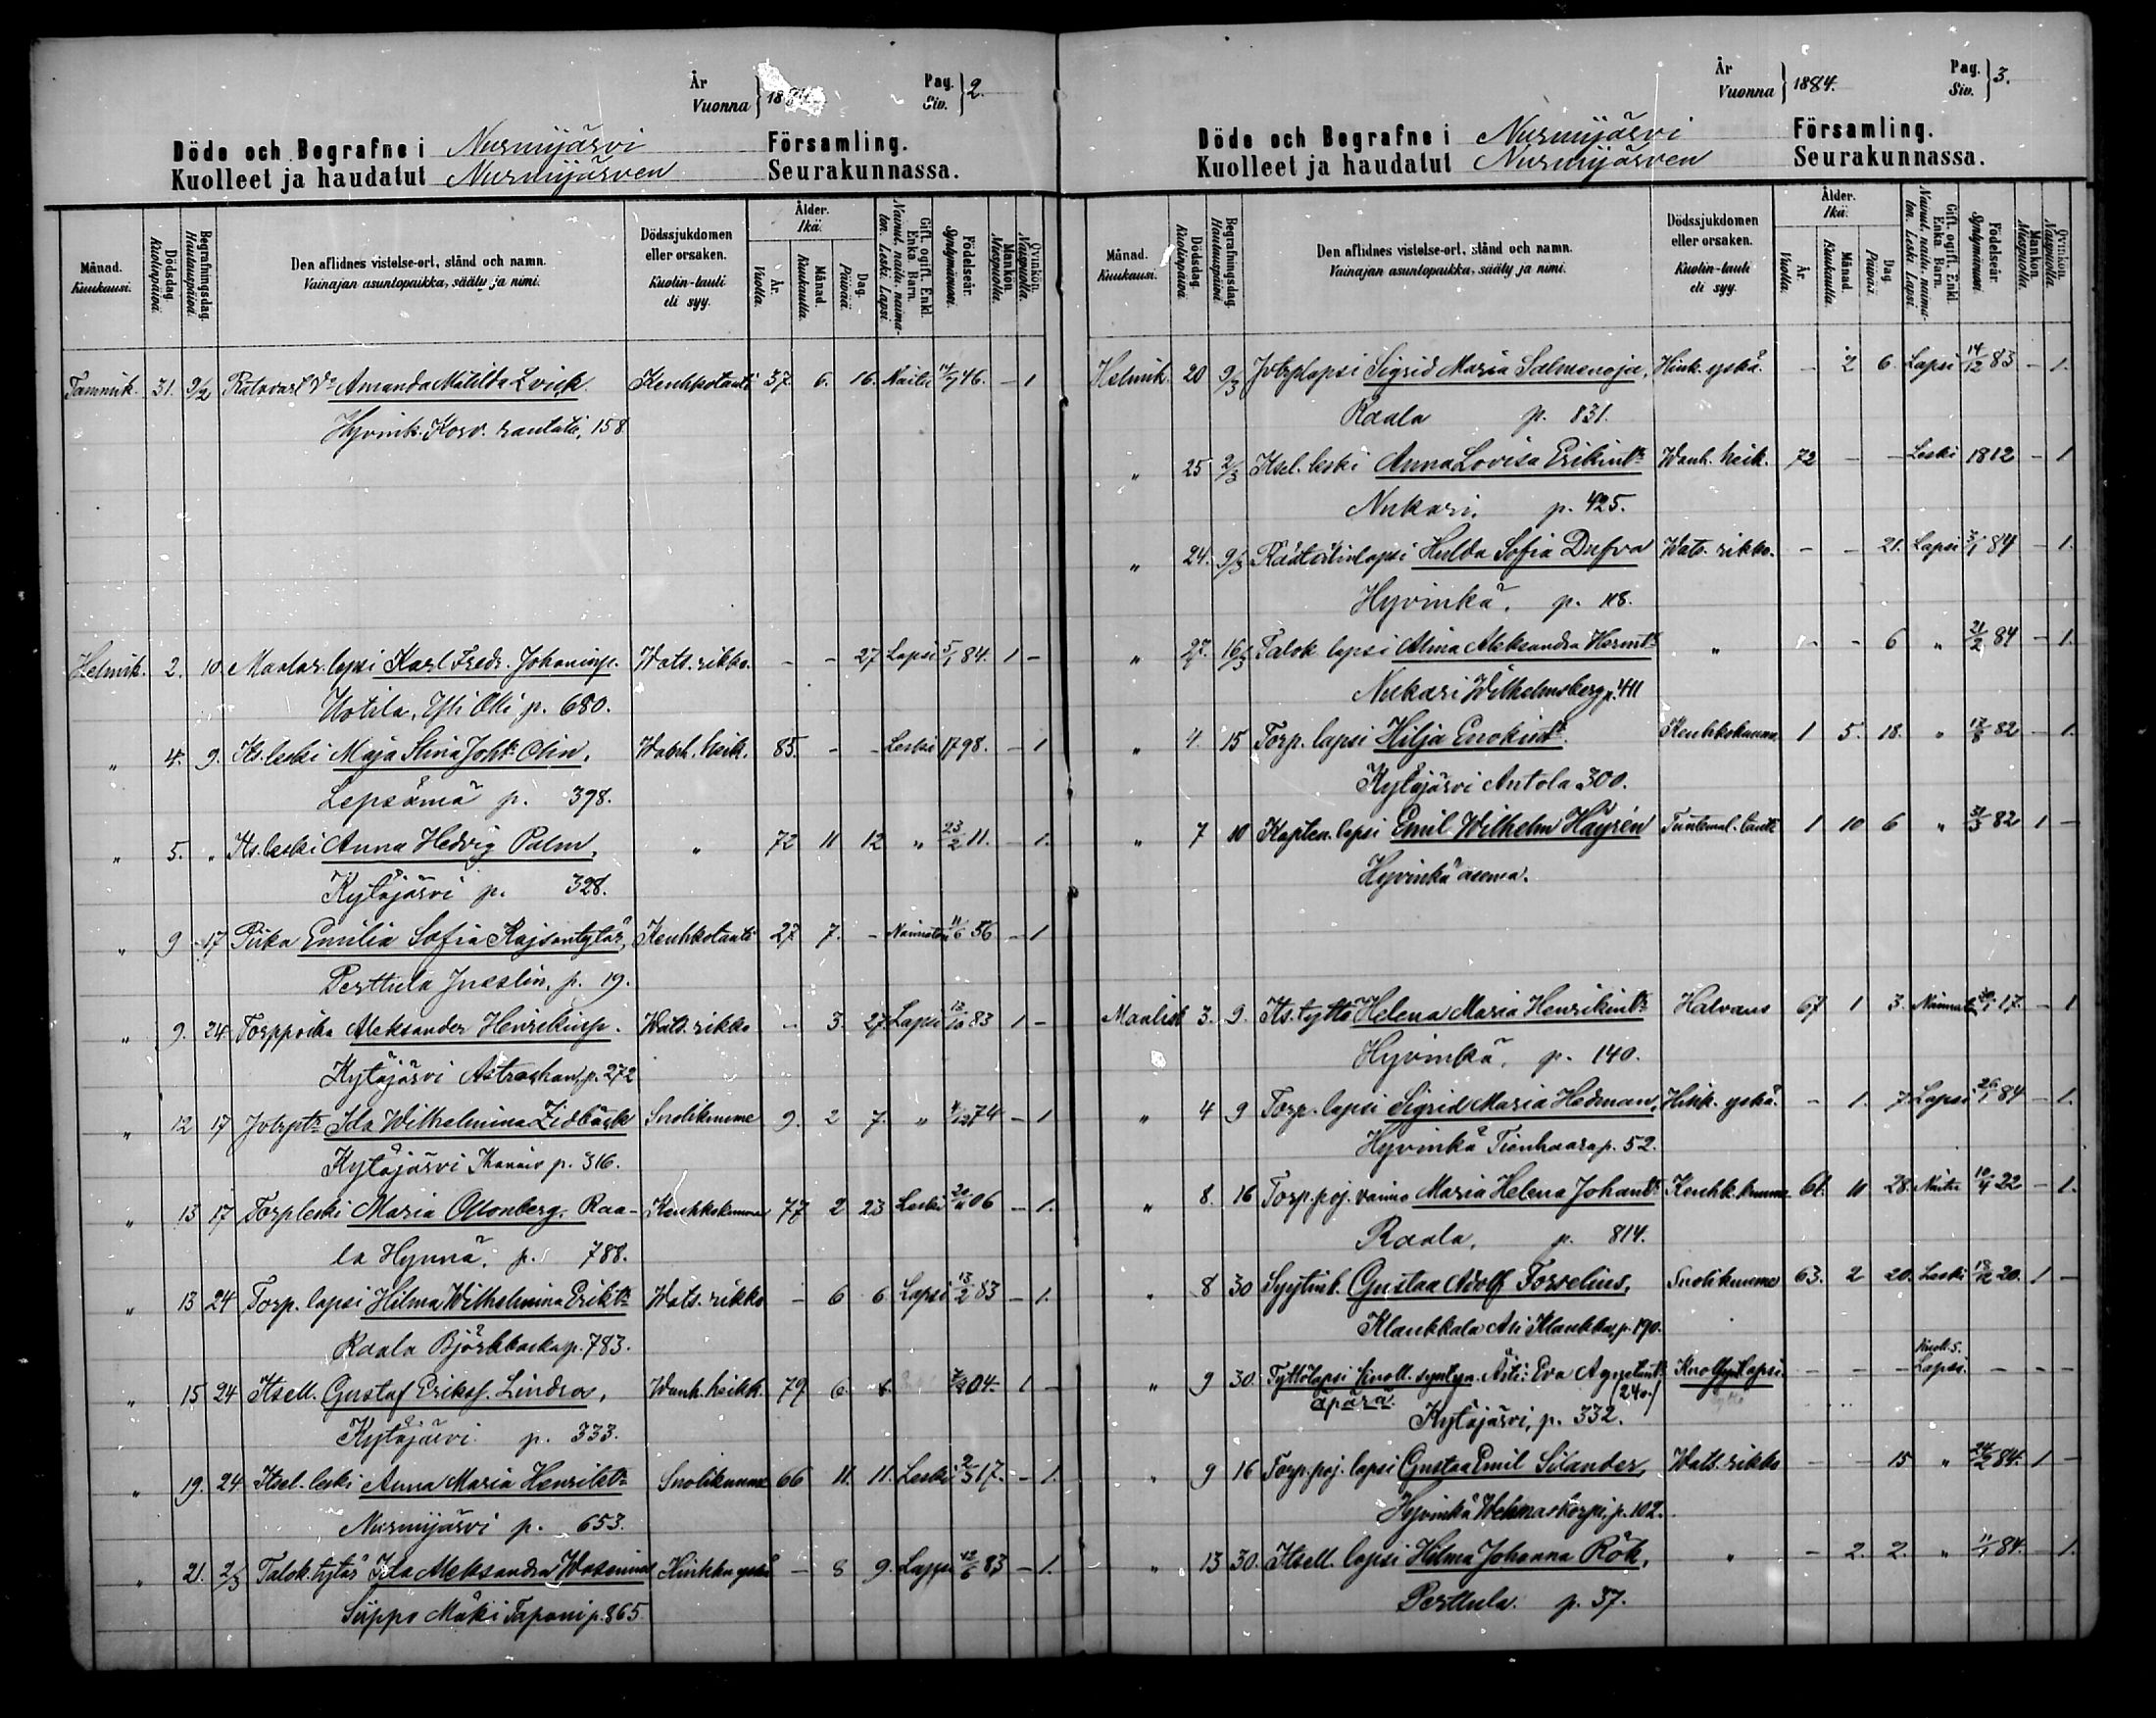 År
Vuonna } 18
Pag.
Siv. } 2.
Döde och Begrafne i Nurmijärvi Församling.
Kuolleet ja haudatut Nurmijärven Seurakunnassa.
Månad. Kuukausi.
Dödsdag. Kuolinpäivä.
Begrafningsdag. Hautauspäivä.
Den aflidnes vistelse-ort, stånd och namn.
Vainajan asuntopaikka, sääty ja nimi.
Dödssjukdomen eller orsaken.
Kuolin-tauti eli syy.
Ålder. Ikä.
År. Vuotta.
Månad. Kuukautta.
Dag. Päivää.
Gift, ogift, Enkl. Enka, Barn.
Nainut, naitu, naimaton. Leski. Lapsi.
Födelseår. Syntymävuosi.
Mankön. Miespuolia.
Qvinkön. Naispuolia.
Tammik. 31. 9/2 Amanda Matilda Lvick Keuhkotauti 37. 6. 16. Naitu 14/7 46. — 1
Hyvink. Korv. rautatie, 158
Helmik. 2. 10. Maalar. lapsi Karl Fredr. Johaninp. Wats. rikko. - - 27 Lapsi 5/1 84. 1 -
Uotila, Yli Olli p. 680.
" 4. 9. Its. leski Maja Stina Joht. Olin, Wanh. heik. 85. - - Leski 1798. - 1
Lepsämä p. 398.
" 5. " Its. leski Anna Hedvig Palm, " 72 11 12 " 23/2 11. - 1.
Kytäjärvi p. 328.
" 9 17 Piika Emilia Sofia Kajsantytär, Keuhkotauti 27 7. - Naimaton 11/6 56 - 1
Perttula Jusslin, p. 19.
" 9. 24 Torppoika Aleksander Henrikinp. Wats. rikko - 3. 27 Lapsi 12/10 83 1 -
Kytäjärvi Astrachan, p. 272
" 12 17 Ida Wilhelmina Zidbäck Snolikumme 9. 2 7. " 4/12 74 - 1
Kytäjärvi p. 316.
" 13 17 Torpleski Maria Ottonberg. Raa- Keuhkokumme 77 2 23 Leski 20/11 06 - 1.
la Hynnä, p. 788.
" 13 24 Torp. lapsi Hilma Wilhelmina Erikt. Wats. rikko - 6 6 Lapsi 13/2 83 - 1.
Raala Björkbacka p. 783.
" 15 24 Itsell. Gustaf Eriksp. Lindros, Wanh. heikk. 79 6 8 04. 1 -
Kytäjärvi p. 333.
" 19. 24 Itsel. leski Anna Maria Henrikt. Snolikumme 66 11. 11. Leski 17. - 1.
Nurmijärvi p. 653.
" 21. 2/3 Talok. tytär Ida Aleksandra Wasenius Hinkku yskä - 8 9. Lapsi 12/6 83 - 1.
Siippo Mäki Tapani p. 865.
År
Vuonna } 1884.
Pag.
Siv. } 3.
Döde och Begrafne i Nurmijärvi Församling.
Kuolleet ja haudatut Nurmijärven Seurakunnassa.
Månad. Kuukausi.
Dödsdag. Kuolinpäivä.
Begrafningsdag. Hautauspäivä.
Den aflidnes vistelse-ort, stånd och namn.
Vainajan asuntopaikka, sääty ja nimi.
Dödssjukdomen eller orsaken.
Kuolin-tauti eli syy.
Ålder. Ikä.
År. Vuotta.
Månad. Kuukautta.
Dag. Päivää.
Gift, ogift, Enkl. Enka, Barn.
Nainut, naitu, naimaton. Leski. Lapsi.
Födelseår. Syntymävuosi.
Mankön. Miespuolia.
Qvinkön. Naispuolia.
Helmik. 20 9/3 Sigrid Maria Salmenoja, Hink. yskä. - 2 6. Lapsi 14/12 83 - 1.
Raala p. 831.
" 25 2/3 Itsel. leski Anna Lovisa Erikint. Wanh. heik. 72 - - Leski 1812 - 1
Nukari, p. 425.
" 24. 9/3 Räätälinlapsi Hulda Sofia Dufva Wats. rikko. - - 21. Lapsi 3/1 84 - 1.
Hyvinkä, p. 118.
" 27. 16/3 Talok. lapsi Alina Aleksandra Hermt. " - - 6 " 21/2 84 - 1.
Nukari Wilhelmsberg p. 411
" 4. 15 Torp. lapsi Hilja Enokint. Keuhkokumme 1 5. 18. " 17/8 82 - 1.
Kytäjärvi Antola 300.
" 7 10 Kapten. lapsi Emil Wilhelm Häyrén Tuntemat. tauti 1 10 6 " 31/3 82 1 -
Hyvinkä asema.
Maalisk 3. 9. Its. tyttö Helena Maria Henrikint. Halvaus 67 1 3. Naimat. 17. - 1
Hyvinkä, p. 140.
" 4 9 Torp. lapsi Sigrid Maria Hedman, Hink. yskä. - 1. 7. Lapsi 26/1 84 - 1.
Hyvinkä Tienhaara p. 52.
" 8. 16 Torp. poj. vaimo Maria Helena Johant. Keuhk. kumme 61. 11 28. Naitu 10/4 22 - 1.
Raala, p. 814.
" 8 30 Syytink. Gustaa Adolf Forselius, Snolikumme 63. 2 20. Leski 18/12 20. 1 -
Klaukkala Ali Klaukka, p. 190.
" 9 30. Tyttölapsi kuoll. syntyn. Äiti: Eva Agustint. Kuoll. synt. lapsi - - - Kuoll. s. Lapsi. - - -
äpärä. (24 v.)
Kytäjärvi, p. 332.
" 9 16 Torp. poj. lapsi Gustaa Emil Silander, Wats. rikko - - 15 " 24/2 84. 1 -
Hyvinkä Wehmaskorpi, p. 102.
" 13 30. Itsell. lapsi Helma Johanna Rök, " - 2. 2. " 11/1 84. - 1.
Perttula. p. 37.